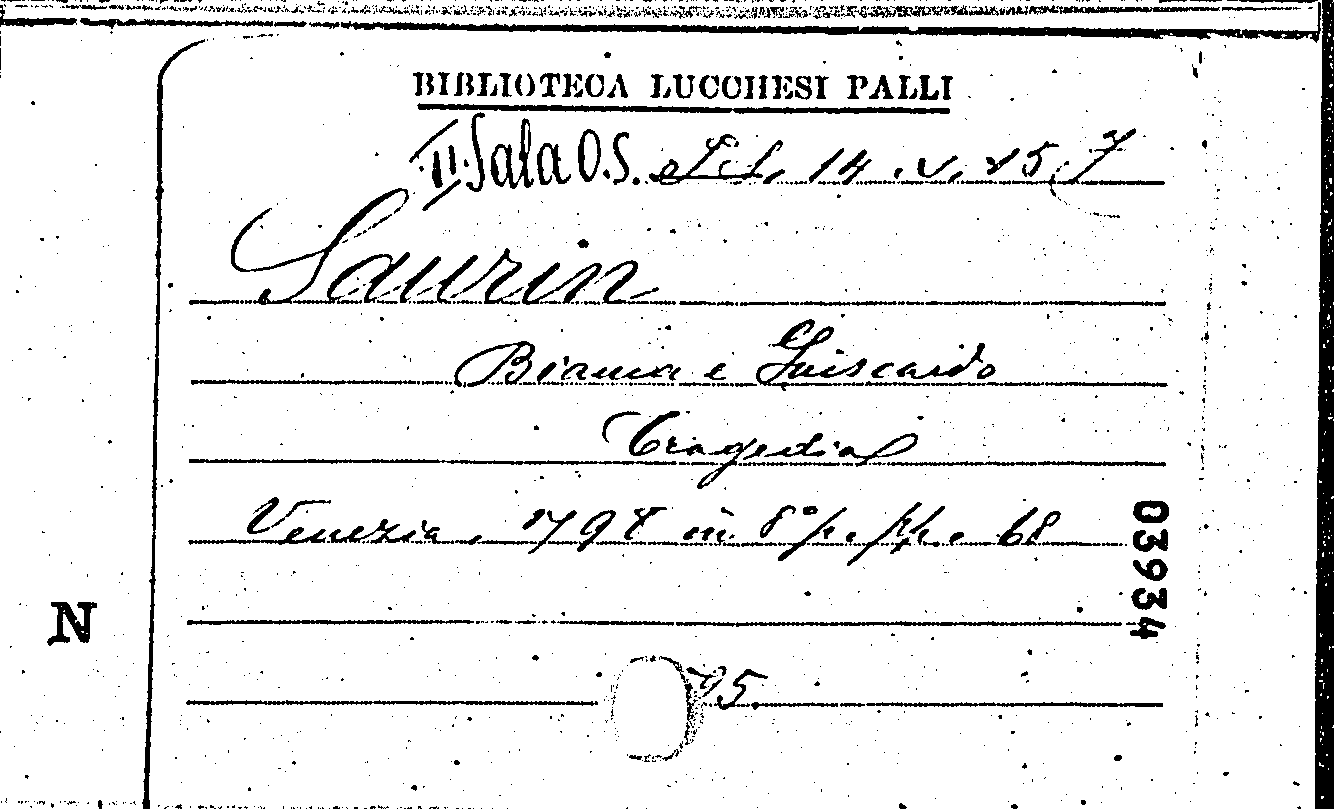 BIBLIOTECA LUCCHESI PALLI
II Sala O.S. 14 .v. 15 7
Saurin
Bianca e Guiscardo
Tragedia
Venezia. 1798 in 8° p. pp. 68
03934
N
95.